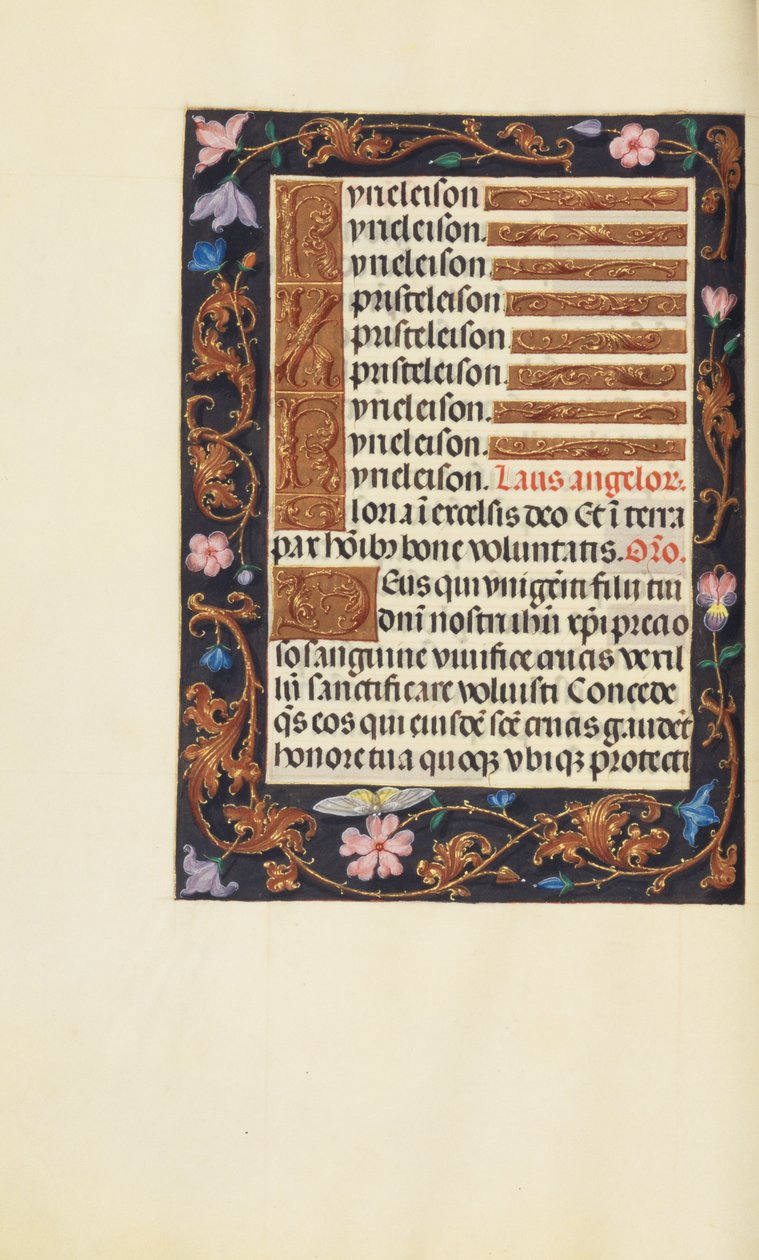 Kyrieleison
kyrieleison.
kyrieleison.
Xpristeleison.
Xpristeleison.
Xpristeleison.
Kyrieleison.
kyrieleison.
kyrieleison. Laus angelor:
Gloria ī excelsis deo Et ī terra
pax hōībꝫ bone voluntatis. Or̄o.
DEus qui vnigēiti filii tui
dn̄i nostri ihū xp̄i precio
so sanguine viuifice crucis vexil
lū sanctificare voluisti Concede
q̄s eos qui eiusdē scē crucis gaudēt
honore tua quoqꝫ vbiqꝫ protecti